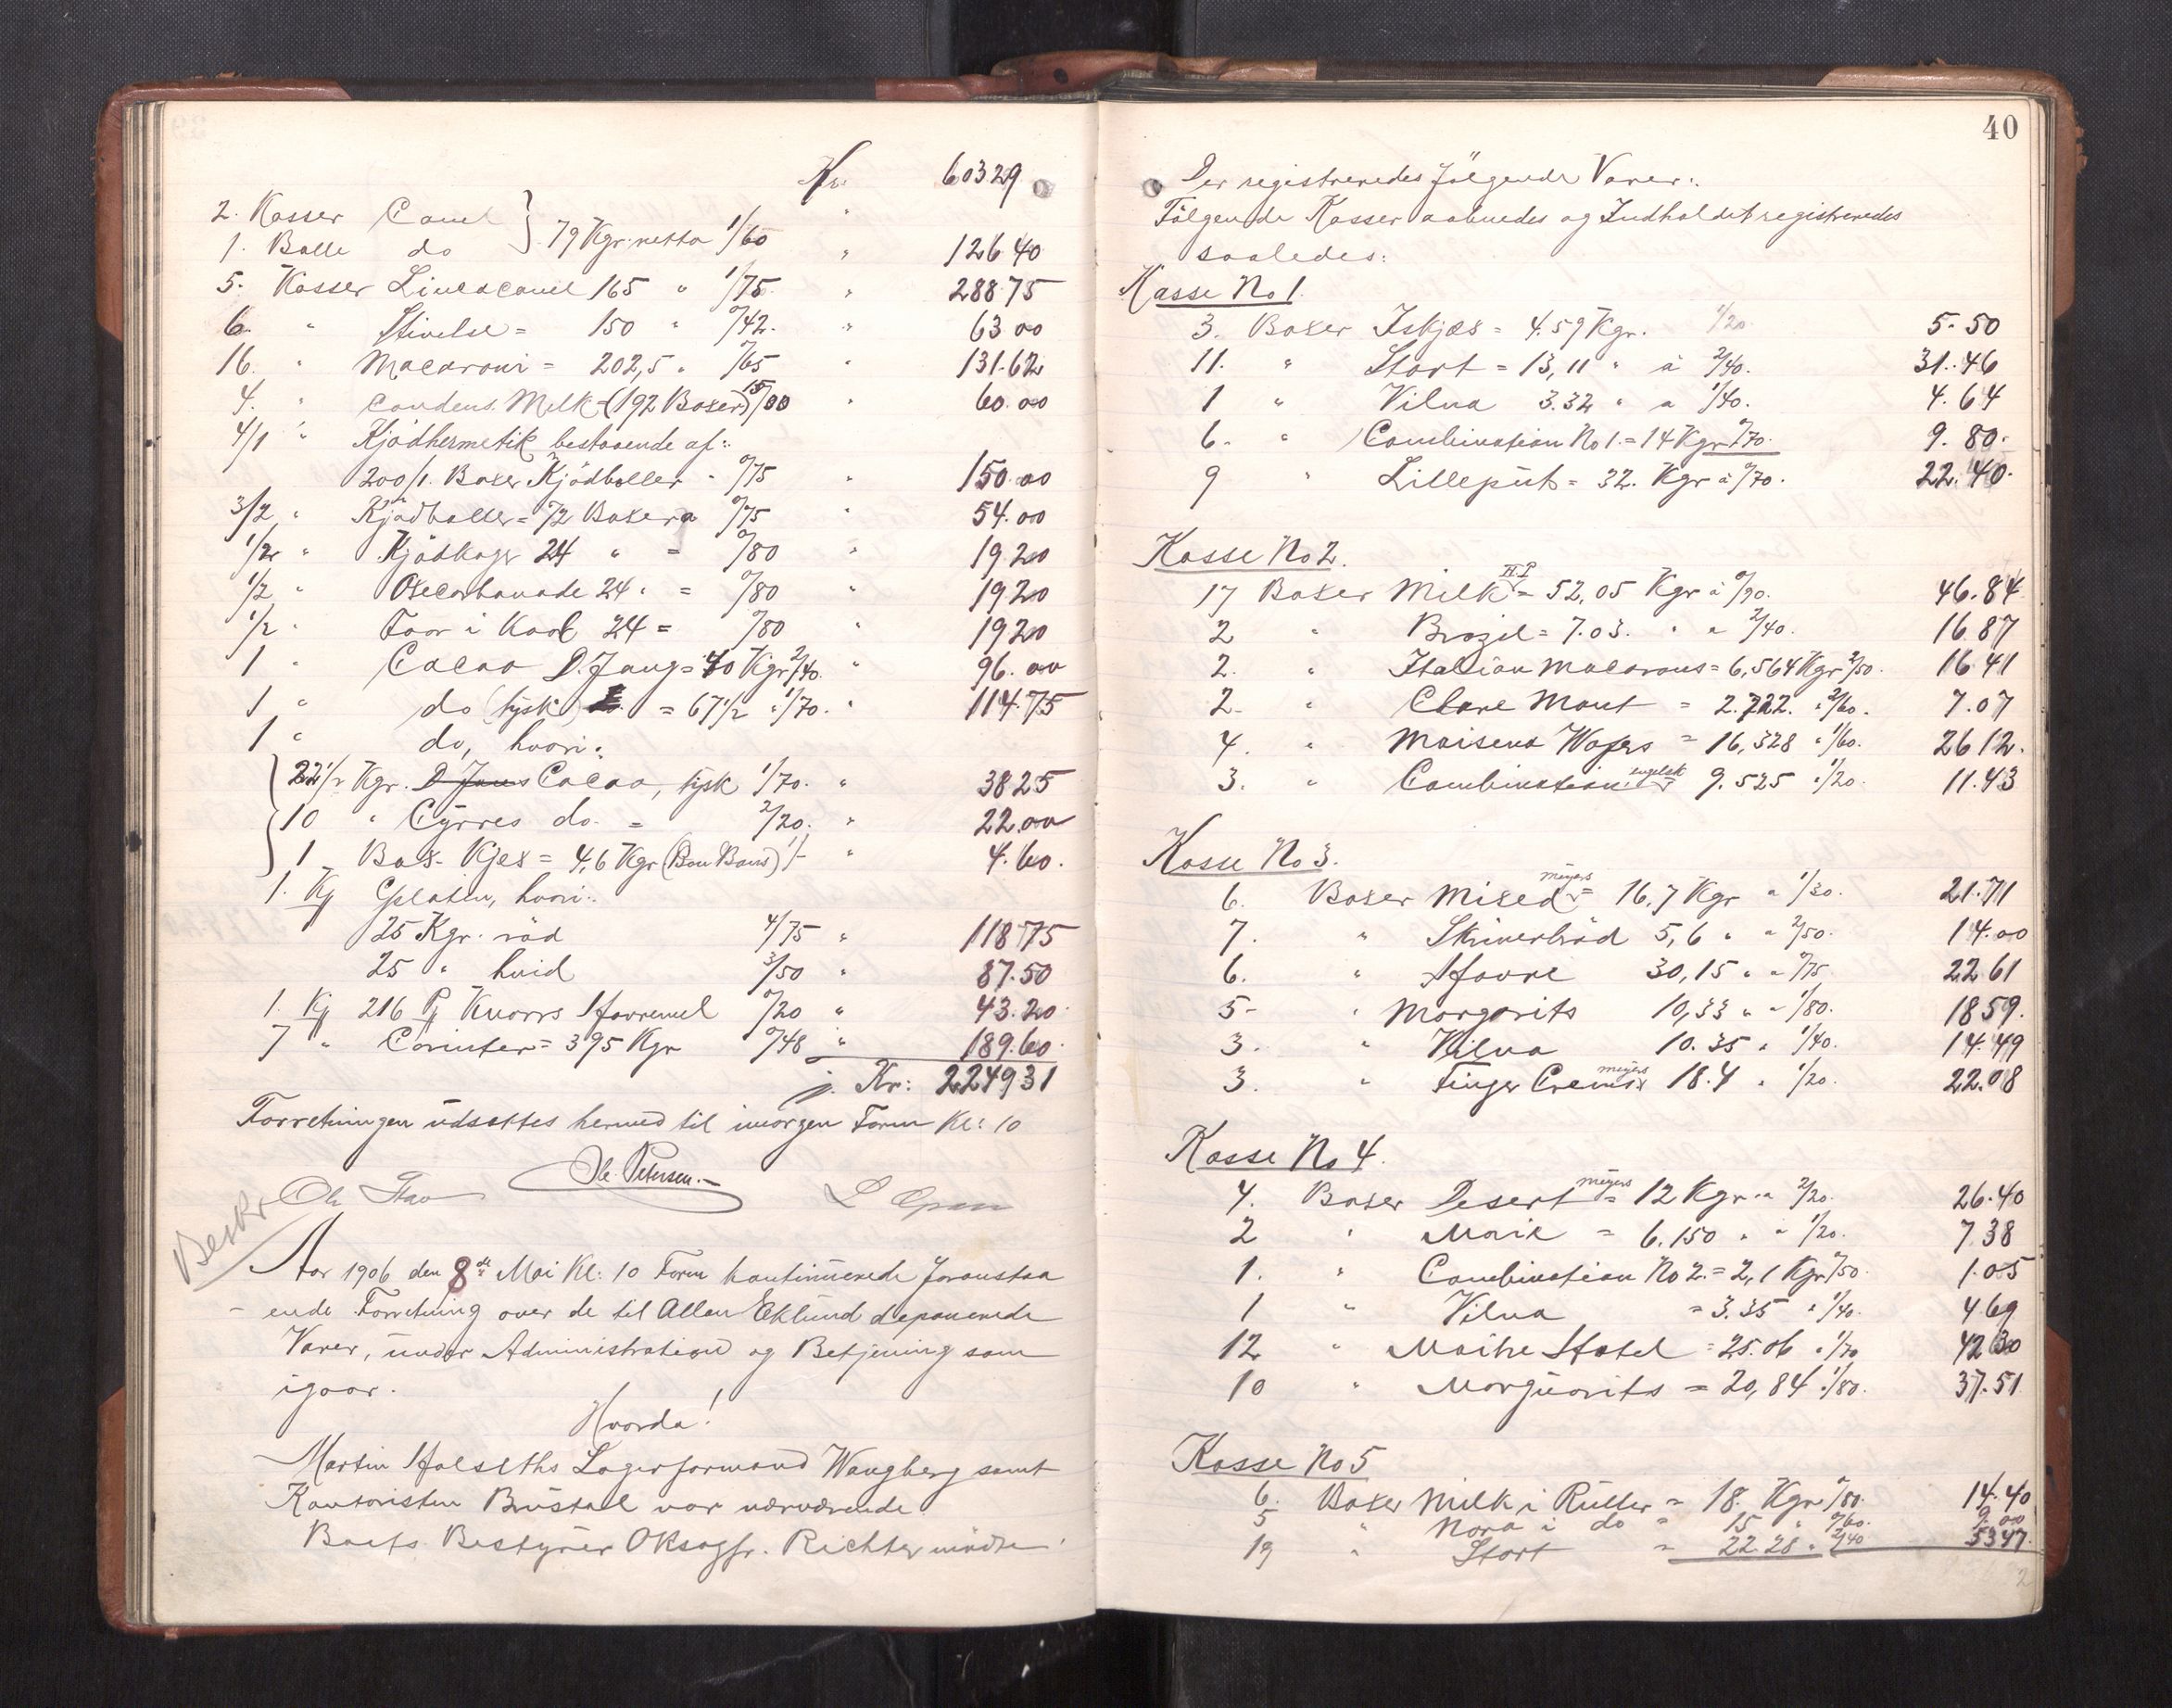 Kr. 60329
2. Kasser Canel } 79 Kgr. netto 1/60 "
1. Balle do " 126 40
5. Kasser Lineacanel 165 " 1/75 " 288 75
6. " Stivelse = 150 " 0/42. " 63 00
16. " Macaroni = 202,5 " 0/65 " 131.62
4. " Condens. Milk = (192 Boxer) 15/00 " 60.00
4/1 " Kjödhermetik bestaaende af:
200/1. Boxer Kjödboller - 0/75 " 150.00
3/2 " Kjödboller = 72 Boxer a 0/75 " 54.00
1/2 " Kjödkager 24 " = 0/80 " 19.20
1/2 " Oxecarbonade 24 " = 0/80 " 19 20
1/2 " Faar i Kaal 24 = 0/80 " 19 20
1 " Cacao D. Jong = 40 Kgr 2/40. " 96.00
1 " do (tysk) = 67 1/2 " 1/70. " 114.75
1 " do, hvori:
22 1/2 Kgr. D Jons Cacao, tysk 1/70. " 38 25
10 " Cyrres do. = 2/20. " 22.00
1 Box Kjex = 4,6 Kgr (Bon Bons) 1/- " 4.60.
1. Kj Gelatin, hvori:
25 Kgr. röd 4/75 " 118 75
25 " hvid 3/50 " 87.50
1. Kj 216 Pj Knorrs Havremel 0/20 " 43.20
7 " Corinter = 395 Kgr 0/48 " 189.60
Kr: 2249 31
Forretningen udsættes hermed til imorgen Form Kl: 10
Ole Stav Chr. Petersen. L
Beskr
Aar 1906 den 8de Mai Kl: 10 Form kontinuerede foranstaa
- ende Forretning over de til Allan Eklund deponerede
Varer, under Administration og Betjening som
igaar.
Hvorda!
Martin Halseths Lagerformand Wangberg samt
Kontoristen Brustad var nærværende
Boets Bestyrer ORsagfr. Richter mödte
40
Der registreredes fölgende Varer:
Fölgende Kasser aabnedes og Indholdet registreredes
saaledes:
Kasse No 1.
3. Boxer Iskjæs = 4.59 Kgr. 1/20. 5.50
11. " Start = 13,11 " à 2/40. 31.46
1 " Vilna 3.32 " a 1/40. 4.64
6. " Combination No 1. = 14 Kgr 0/70. 9.80.
9 " Lilleput = 32. Kgr à 0/70. 22.40.
Kasse No 2.
17 Boxer Milk H.P = 52,05 Kgr à 0/90. 46.84
2 " Brazil = 7.03. " a 2/40. 16.87
2. " Italian Macarons = 6,564 Kgr 2/50. 16 41
2. " Clare Mont = 2.722. " 2/60. 7.07
4. " Maisena Wafers = 16,328 " 1/60. 26 12.
3. " Combination engelsk 9.525 " 1/20. 11.43
Kasse No 3.
6. Boxer Mixed meyers = 16,7 Kgr a 1/30. 21.71
7. " Skriverbröd 5,6 " a 2/50. 14.00
6. " Havre 30,15 " a 0/75 22 61
5- " Margarits 10,33 " a 1/80. 18 59.
3. " Vilna 10.35 " 1/40. 14.49
3. " Finger Crems meyers 18.4 " 1/20. 22.08
Kasse No 4.
4. Boxer Desert meyers = 12 Kgr a 2/20. 26.40
2 " Marie = 6.150 " a 1/20. 7 38
1. " Combination No 2. = 2,1 Kgr 0/50. 1.05
1 " Vilna = 3.35 " 1/40. 4 69
12 " Maihe Hotel = 25.06 " 1/70 42 30
10 " Marguarits = 20,84 " 1/80. 37.51
Kasse No 5
6. Boxer Milk i Ruller = 18. Kgr 0/80. 14.40
5 " Nora i do = 15 " 0/60. 9.00
19 " Start = 22.28 " 2/40 53 47.